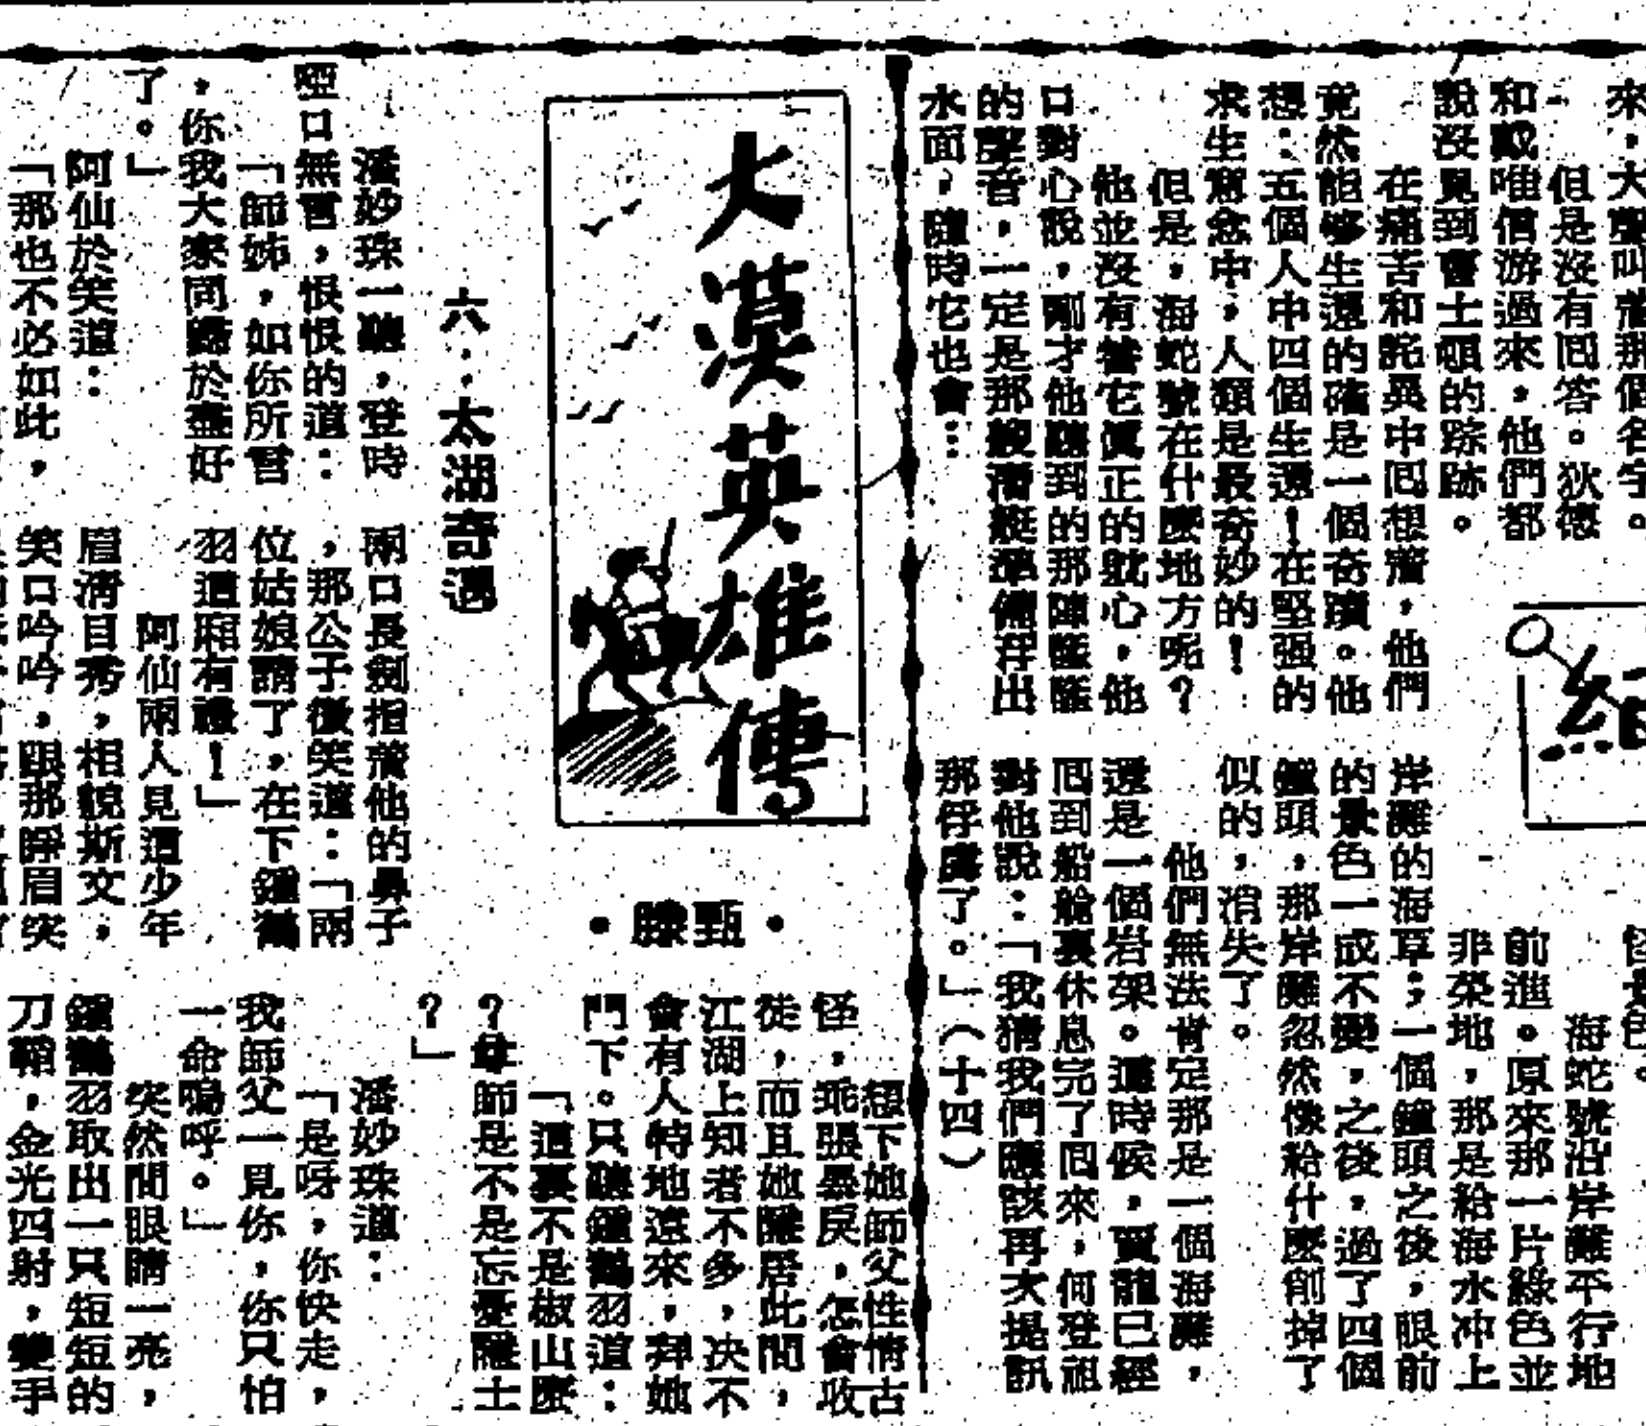 來,大聲叫着那個名字。
但是沒有囘答。狄德
和戴唯信游過來,他們都
說沒見到曹士頓的踪跡。
在痛苦和詫異中囘想着,他們
竟然能够生還的確是一個奇蹟。他
想:五個人中四個生還!在堅强的
求生意念中,人類是最奇妙的!
但是,海蛇號在什麽地方呢?
他並沒有替它眞正的躭心,他
口對心說,剛才他聽到的那陣
的聲音,一定是那艘潛艇準備浮出
水面,隨時它也會…
岸灘的海草;一個鐘頭之後,眼前
的景色一成不變,之後,過了四個
鐘頭,那岸灘忽然像給什麽削掉了
似的,消失了。
他們無法肯定那是一個海灘,
還是一個岩架。這時候,賈龍已經
囘到船艙裏休息完了囘來,何登祖
對他說:「我猜我們應該再次提訊
那俘虜了。」(十四)
海蛇號沿岸灘平行地
前進。原來那一片綠色並
非菜地,那是給海水冲上
怪景色。
大漠英雄傳
•甄滕•
六・太湖奇遇
潘妙珠一聽,登時
啞口無言,恨恨的道:
「師姊,如你所言
,你我大家同歸於盡好
了。」
阿仙於笑道:
「那也不必如此,
兩口長劍指着他的鼻子
,那公子微笑道:「兩
位姑娘請了,在下鐘鶴
羽這廂有禮!」
阿仙兩人見這少年
眉清目秀,相貌斯文,
笑口吟吟,跟那睜眉突
想下她師父性情古
怪,乖張暴戾,怎會收
徒,而且她雖居此間,
江湖上知者不多,决不
會有人特地遠來,拜她
門下。只聽鐘鶴羽道:
「這裏不是椒山麽
?尊師是不是忘憂離士
?」
潘妙珠道:
「是呀,你快走,
我師父一見你,你只怕
一命嗚呼。」
突然間眼睛一亮,
鐘鶴羽取出一只短短的
刀鞘,金光四射,雙手